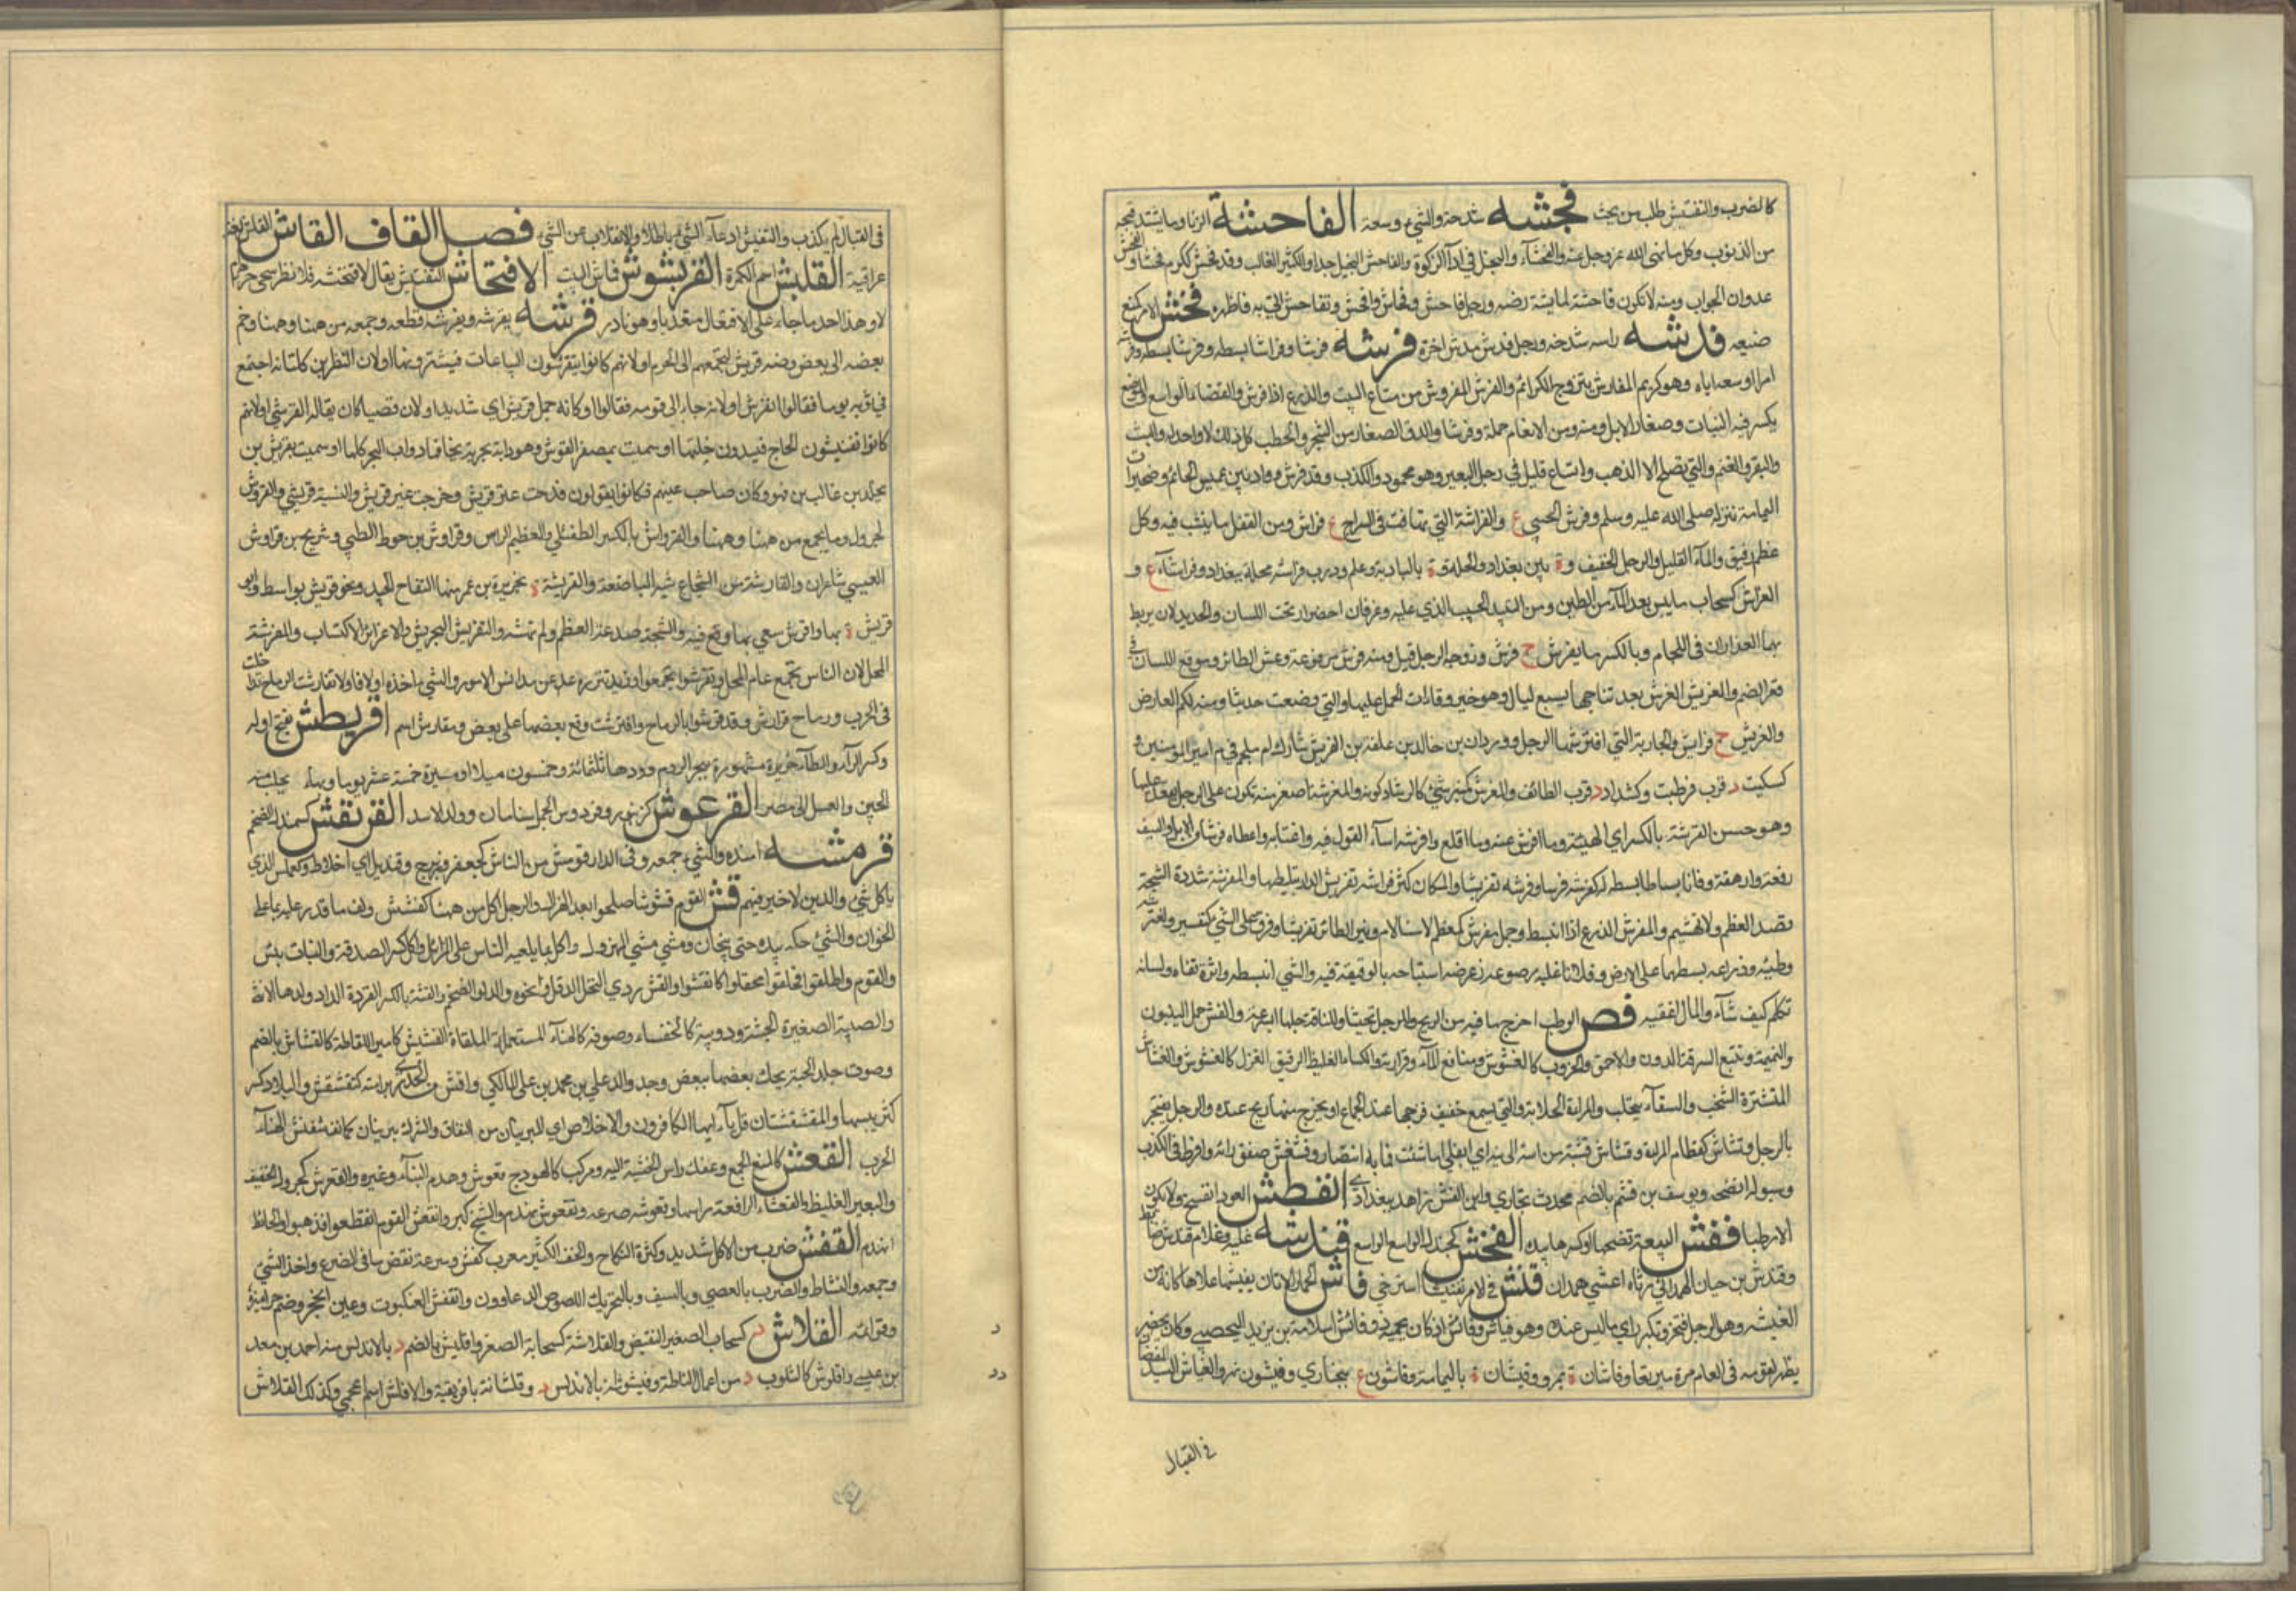 كالضرب والتفتيش طلب من بحث فجشه شدخه والشيء وسعه الفاحشة الزنا وما يشتد قبحه
من الذنوب وكل ما نهى الله عز وجل عنه والفحشاء والبخل في اداء الزكوة والفاحش البخيل جدا والكثير الغالب وقد فحش ككرم فحشا والفحش
عدوان الجواب ومنه لا تكون فاحشة لعايشة رضه ورجل فاحش وفحاش وافحش وتفاحش اتى به فاظهره فخش الامر كمنع
ضيعه فدشه راسه شدخه ورجل فدش مدش اخرق فرشه فرشا وفراشا بسطه وفرشا بسطه وفرشه
امرا اوسعه اياه وهو كريم المفارش يتزوج الكرائم والفرش المفروش من متاع البيت والزرع اذا فرش والفضاء الواسع والموضع
يكسر فيه النبات وصغار الابل ومنه ومن الانعام حملة وفرشا والدق الصغار من الشجر والحطب كل ذلك لا واحد له والبث
والبقر والغنم والتي لا تصلح الا للذبح واتساع قليل في رجل البعير وهو محمود والكذب وقد فرش وواد بين عميس الحمائم وصخيرات
اليمامة نزله صلى الله عليه وسلم وفرش الحبي ع والفراشة التي تهافت في السراج ع فراش ومن القفل ما ينشب فيه وكل
عظم رقيق والماء القليل والرجل الخفيف وة بين بغداد والحلة وة بالبادية وعلم ودرب فراشة محلة ببغداد وفراشاء ع و
الفراش كسحاب ما يبس بعد الماء من الطين ومن النبيذ الحبب الذي عليه وعرقان اخضران تحت اللسان والحديدتان يربط
بهما العذاران في اللجام وبالكسر ما يفرش ج فرش وزوجة الرجل قيل ومنه فرش مرفوعة وعش الطائر وموقع اللسان في
قعر الفم والفريش الفرس بعد نتاجها بسبع ليال وهو خير اوقات الحمل عليها والتي وضعت حديثا ومنه لكم العارض
والفريش ج فرايش والجارية التي افترشها الرجل ووردان بن خالد بن علفة بن الفريش شارك ابن ملجم في دم امير المؤمنين و
كسكيت د قرب قرطبة وكشداد د قرب الطائف والمفرش كمنبر شيء كالشاذكونة والمفرشة اصغر منه تكون على الرحل يقعد عليها
وهو حسن الفرشة بالكسر اي الهيئة وما افرش عنه وما اقلع وافرشه اساء القول فيه واغتابه واعطاه فرشا من الابل والسيف
رققه وارهفه وفلانا بساطا بسطه له كفرشه فرشا وفرشه تفريشا والمكان كثر فراشه تفريش الدار تبليطها والمفرشة مشددة الشجة
تصدع العظم ولا تهشم والمفرش الزرع اذا انبسط وجمل مفرش كمعظم لا سنام له وفرش الطائر تفريشا رفرف على الشيء كتفرش وافترشه
وطئه وذراعيه بسطهما على الارض وفلانا غلبه وصرعه وعرضه استباحه بالوقيعة فيه والشيء انبسط واثره قفاه ولسانه
تكلم كيف شاء والمال اغتصبه فش الوطب اخرج ما فيه من الريح والرجل تجشا والناقة حلبها بسرعة والفش حمل الينبوت
والنميمة وتتبع السرقة الدون والاحمق والخروب كالفشوش ومنافع الماء وقراراته والكساء الغليظ الرقيق الغزل كالفشوش والفشاش
المنتشرة الشخب والسقاء يتحلب والمراة الحلابة والتي يسمع خفيف فرجها عند الجماع او يخرج منها ريح عنده والرجل يفتخر
بالرجل وفشاش كقطام المراة
وببوله انضحه ويوسف بن فش بالضم محدث بخاري وابن الفش زاهد ببغداد انفطش العود انفسخ ولا تكون
الا رطبا ففش البيضة فضخها او كسرها بيده الفنجش كجندل الواسع فندشه غلبه وغلام فندش ضابط
وفندش بن حيان الهمداني رثاه اعشى همدان فنش في الامر تفنيشا استرخى فاش الحمار الاتان يفيشها علاها كانه من
الفيشة وهو الرجل افتخر وتكبر وراى ما ليس عنده وهو فياش وفائش
يظهر لقومه في العام مرة مبرقعا وفاشان ة بمرو وفيشان ة باليمامة وفاشون ع ببخارى وفيشون نهر والفياش السيد المفضال
في القبال
في القبال لم يكذب والتفيش ادعاء الشيء باطلا والانقلاب عن الشيء فصل القاف القاش القاش لغة
عراقية القلبش اسم الكمرة القربشوش قماش البيت الاقتحاش التفتيش يقال لاقتحشنه فلانظر سخي هو ام
لا وهذا احد ما جاء على الافتعال متعديا وهو نادر قرشه يقرشه ويقرشه قطعه وجمعه من ههنا وههنا وضم
بعضه الى بعض ومنه قريش لتجمعهم الى الحرم او لانهم كانوا يتقرشون البياعات فيشترونها او لان النضر بن كنانة اجتمع
في ثوبه يوما فقالوا تقرش او لانه جاء الى قومه فقالوا كانه جمل قريش اي شديد او لان قصيا كان يقال له القرشي او لانهم
كانوا يفتشون الحاج فيسدون خلتها او سميت بمصغر القرش وهو دابة بحرية تخافها دواب البحر كلها او سميت بقريش بن
مخلد بن غالب بن فهر وكان صاحب عيرهم فكانوا يقولون قدمت عير قريش وخرجت عير قريش والنسبة قرشي والقروش
كجرول وما يجمع من ههنا وههنا والقرواش بالكسر الطفيلي والعظيم الراس وقرواش بن حوط الضبي وشريح بن قرواش
العبسي شاعران والقارشة من الشجاج شبه الباضعة والقريشة ة بجزيرة بن عمر منها التفاح الجيد ونهر قريش بواسط وابو
قريش ة بها واقرش سعى به ووقع فيه والشجة صدعت العظم ولم تهشمه والتقريش التحريش والاغراء والاكتساب والمقرشة
المحل لان الناس تجتمع عام المحل وتقرشوا تجمعوا وزيد تنزه عن مدانس الامور والشيء اخذه اولا فاولا تقارشت الرماح تداخلت
في الحرب ورماح قوارش وقد قرشوا بالرماح واقترشت وقع بعضها على بعض ومقارش اسم اقريطش بفتح اوله
وكسر الراء والطاء جزيرة مشهورة ببحر الروم دورها ثلثمائة وخمسون ميلا او مسيرة خمسة عشر يوما وبها يجلب منه
الجبن والعسل الى مصر القرعوش كزنبور وفردوس الجمل له سنامان وولد الاسد القرنفش كسمندل الضخم
قرمشه افسده والشيء جمعه وفي الدار قرمش من الناس كجعفر وزبرج وقنديل اي اخلاط وكعملس الذي
ياكل كل شيء والذين لا خير فيهم قش القوم قشوشا صلحوا بعد الهزال والرجل اكل من ههنا كقشش ولف ما قدر عليه مما على
الخوان والشيء حكه بيده حتى يتحات ومشى مشي المهزول واكل ما يلقيه الناس على المزابل واكل كسر الصدقة والنبات يبس
والقوم وانطلقوا فجفلوا كاقشوا والقش ردي النخل كالدقل ونحوه والدلو الضخم والقشة بالكسر القردة او ولدها الانثى
والصبية الصغيرة الجثة ودويبة كالخنفساء وصوفة كالهناء المستعملة الملقاة القشيش كامير اللقاطة كالقشاش بالضم
وصوت جلد الحية تحك بعضها ببعض وجد والد علي بن محمد بن علي المالكي واقش من الجدري برا منه كتقشقش والبلاد كسر
كثر يبسها والمقشقشتان قل يا ايها الكافرون والاخلاص اي المبريتان من النفاق والشرك تبريان كما تقشقش الهناء
الجرب القعش كالمنع الجمع وعطفك راس الخشبة اليه ومركب كالهودج ج قعوش وهدم البناء وغيره والقعوش كجرول الخفيف
والبعير الغليظ والقعشاء الرافعة راسها وقعوشه صرعه وتقعوش تهدم والشيخ كبر وانقعش القوم انقطعوا فذهبوا والحائط
انهدم القفش ضرب من الاكل شديد وكثرة النكاح والخف القصير معرب كفش وسرعة نفض ما في الضرع واخذ الشيء
وجمعه والنشاط والضرب بالعصى وبالسيف وبالتحريك اللصوص الدعارون وانقفش العنكبوت وغيره انجحر وضم جراميزه
وقوائمه القلاش د كسحاب الصغير المنقبض والقلاشة كسحابة الصغر واقليش بالضم د بالاندلس منه احمد بن معد
بن عيسى واقلوش كاسلوب د من اعمال غرناطة وقيشوطلة بالاندلس د وقلشانة بافريقية والاقلش اسم اعجمي وكذلك القلاش